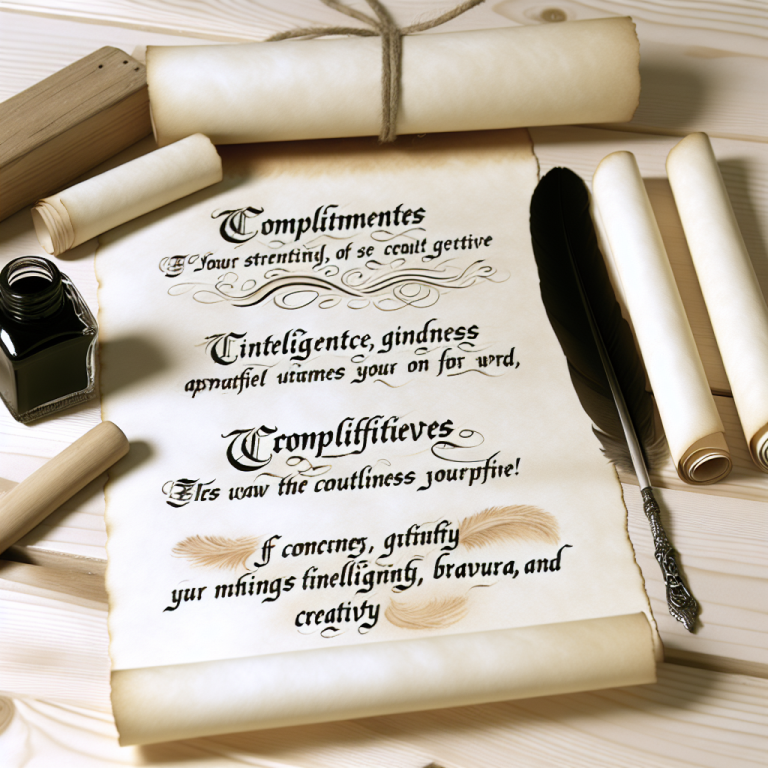 Complitmentes
Your strenting, of se ccoul getive
Tintelligentce, gindness
apnatfiel utumes your on for wrd,
Cronpliffitieves
Is uaw the coutliness jourpfire!
f concrng, gitinfty
yur mhings finelligning, bravura, and
creativty